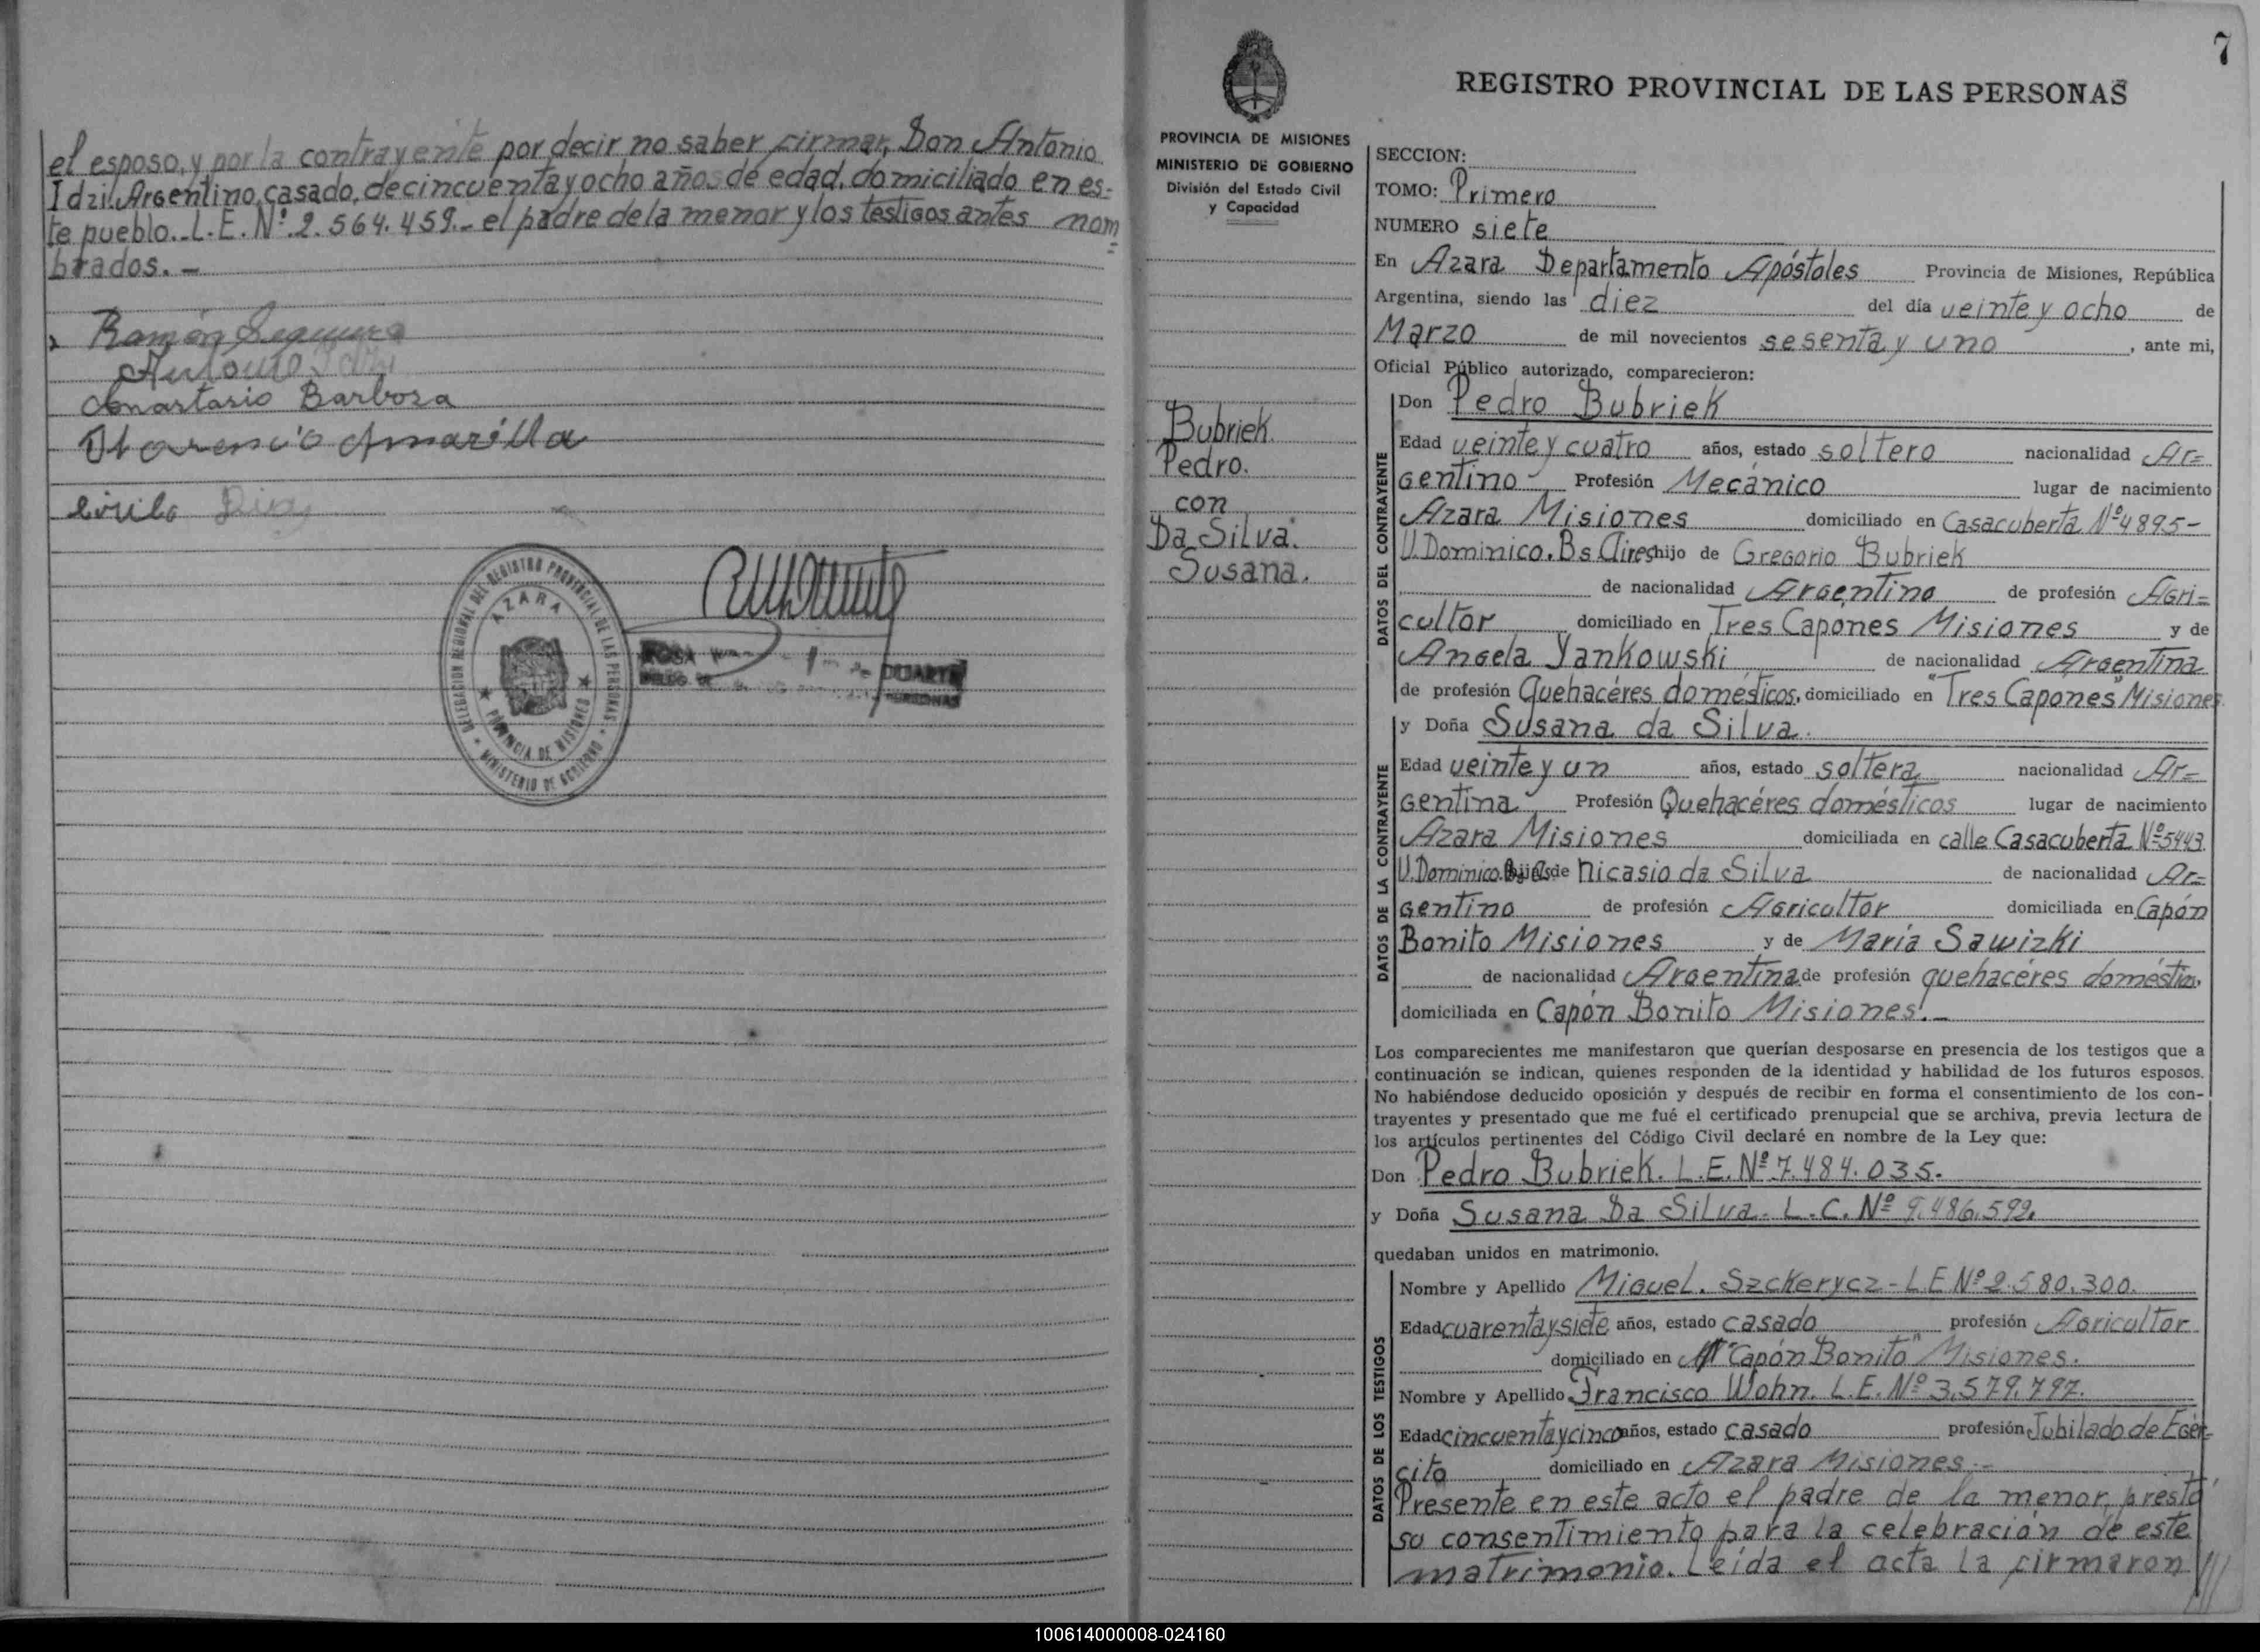 el esposo, y por la contrayente por decir no saber firmar, Don Antonio
Idzi. Argentino, casado, de cincuenta y ocho años de edad, domiciliado en es-
te pueblo. L.E. Nº. 2.564.459.- el padre de la menor y los testigos antes nom
brados. -
Ramón
Antonio Idzi
Anastasio Barbosa
Amarilla
Cirilo
DELEGACION REGIONAL DEL REGISTRO PROVINCIAL DE LAS PERSONAS
AZARA
PROVINCIA DE MISIONES
MINISTERIO DE GOBIERNO
ROSA DUARTE
PERSONAS
7
PROVINCIA DE MISIONES
MINISTERIO DE GOBIERNO
División del Estado Civil
y Capacidad
Bubriek
Pedro.
con
Da Silva.
Susana.
REGISTRO PROVINCIAL DE LAS PERSONAS
SECCION:
TOMO: Primero
NUMERO siete
En Azara Departamento Apóstoles Provincia de Misiones, República
Argentina, siendo las diez del día veinte y ocho de
Marzo de mil novecientos sesenta y uno, ante mi,
Oficial Público autorizado, comparecieron:
DATOS DEL CONTRAYENTE
Don Pedro Bubriek
Edad veinte y cuatro años, estado soltero nacionalidad Ar=
gentino Profesión Mecánico lugar de nacimiento
Azara Misiones domiciliado en Casacuberta Nº 4895-
V. Dominico. Bs. Aires hijo de Gregorio Bubriek
de nacionalidad Argentino de profesión Agri=
cultor domiciliado en Tres Capones Misiones y de
Angela Yankowski de nacionalidad Argentina
de profesión Quehacéres domésticos, domiciliado en "Tres Capones" Misiones
DATOS DE LA CONTRAYENTE
y Doña Susana da Silva.
Edad veinte y un años, estado soltera nacionalidad Ar=
gentina Profesión Quehacéres domésticos lugar de nacimiento
Azara Misiones domiciliada en calle Casacuberta Nº 5443
V. Dominico. hija de Nicasio da Silva de nacionalidad Ar=
gentino de profesión Agricultor domiciliada en Capón
Bonito Misiones y de María Sawizki
de nacionalidad Argentina de profesión quehacéres doméstic.
domiciliada en Capón Bonito Misiones.-
Los comparecientes me manifestaron que querían desposarse en presencia de los testigos que a
continuación se indican, quienes responden de la identidad y habilidad de los futuros esposos.
No habiéndose deducido oposición y después de recibir en forma el consentimiento de los con-
trayentes y presentado que me fué el certificado prenupcial que se archiva, previa lectura de
los artículos pertinentes del Código Civil declaré en nombre de la Ley que:
Don Pedro Bubriek. L.E. Nº 7.484.035.
y Doña Susana Da Silva. L.C. Nº 9.486.592.
quedaban unidos en matrimonio.
DATOS DE LOS TESTIGOS
Nombre y Apellido Miguel. Szckerycz - L.E Nº 2.580.300.
Edad cuarenta y siete años, estado casado profesión Agricultor
domiciliado en "Capón Bonito" Misiones.
Nombre y Apellido Francisco Wohn. L.E. Nº 3.579.797.
Edad cincuenta y cinco años, estado casado profesión Jubilado de Egér-
cito domiciliado en Azara Misiones.-
Presente en este acto el padre de la menor, prestó
su consentimiento para la celebración de este
matrimonio. Leída el acta la firmaron
100614000008-024160